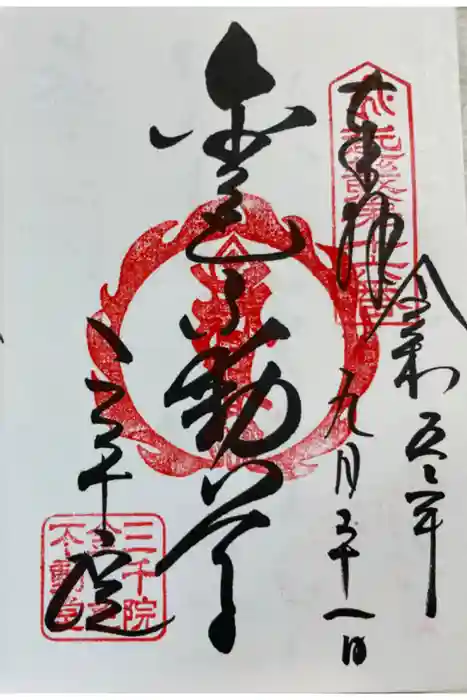 奉拝
令和五年
九月二十一日
金色不動尊
三千院
三千院
金色
不動堂